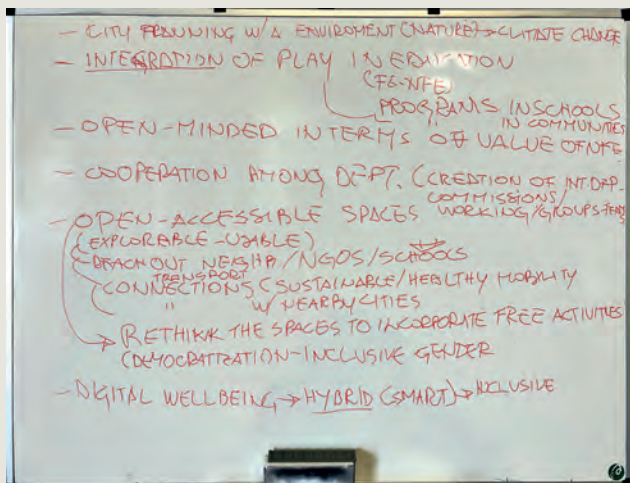 - CITY PLANNING W/A ENVIROMENT (NATURE) → CLIMATE CHANGE
- INTEGRATION OF PLAY IN EDUCATION
(FE-NFE)
PROGRAMS IN SCHOOLS
" IN COMMUNITIES
- OPEN-MINDED IN TERMS OF VALUE OF NFE
- COOPERATION AMONG DEPT. (CREATION OF INT.DEP.
COMMISSIONS/
WORKING/GROUPS-
- OPEN-ACCESSIBLE SPACES
(EXPLORABLE-USABLE)
REACH OUT NEIGHB/NGOS/SCHOOLS
TRANSPORT
CONNECTIONS (SUSTAINABLE/HEALTHY MOBILITY
" W/ NEARBY CITIES
→ RETHINK THE SPACES TO INCORPORATE FREE ACTIVITIES
(DEMOCRATIZATION-INCLUSIVE GENDER
- DIGITAL WELLBEING → HYBRID (SMART) → INCLUSIVE